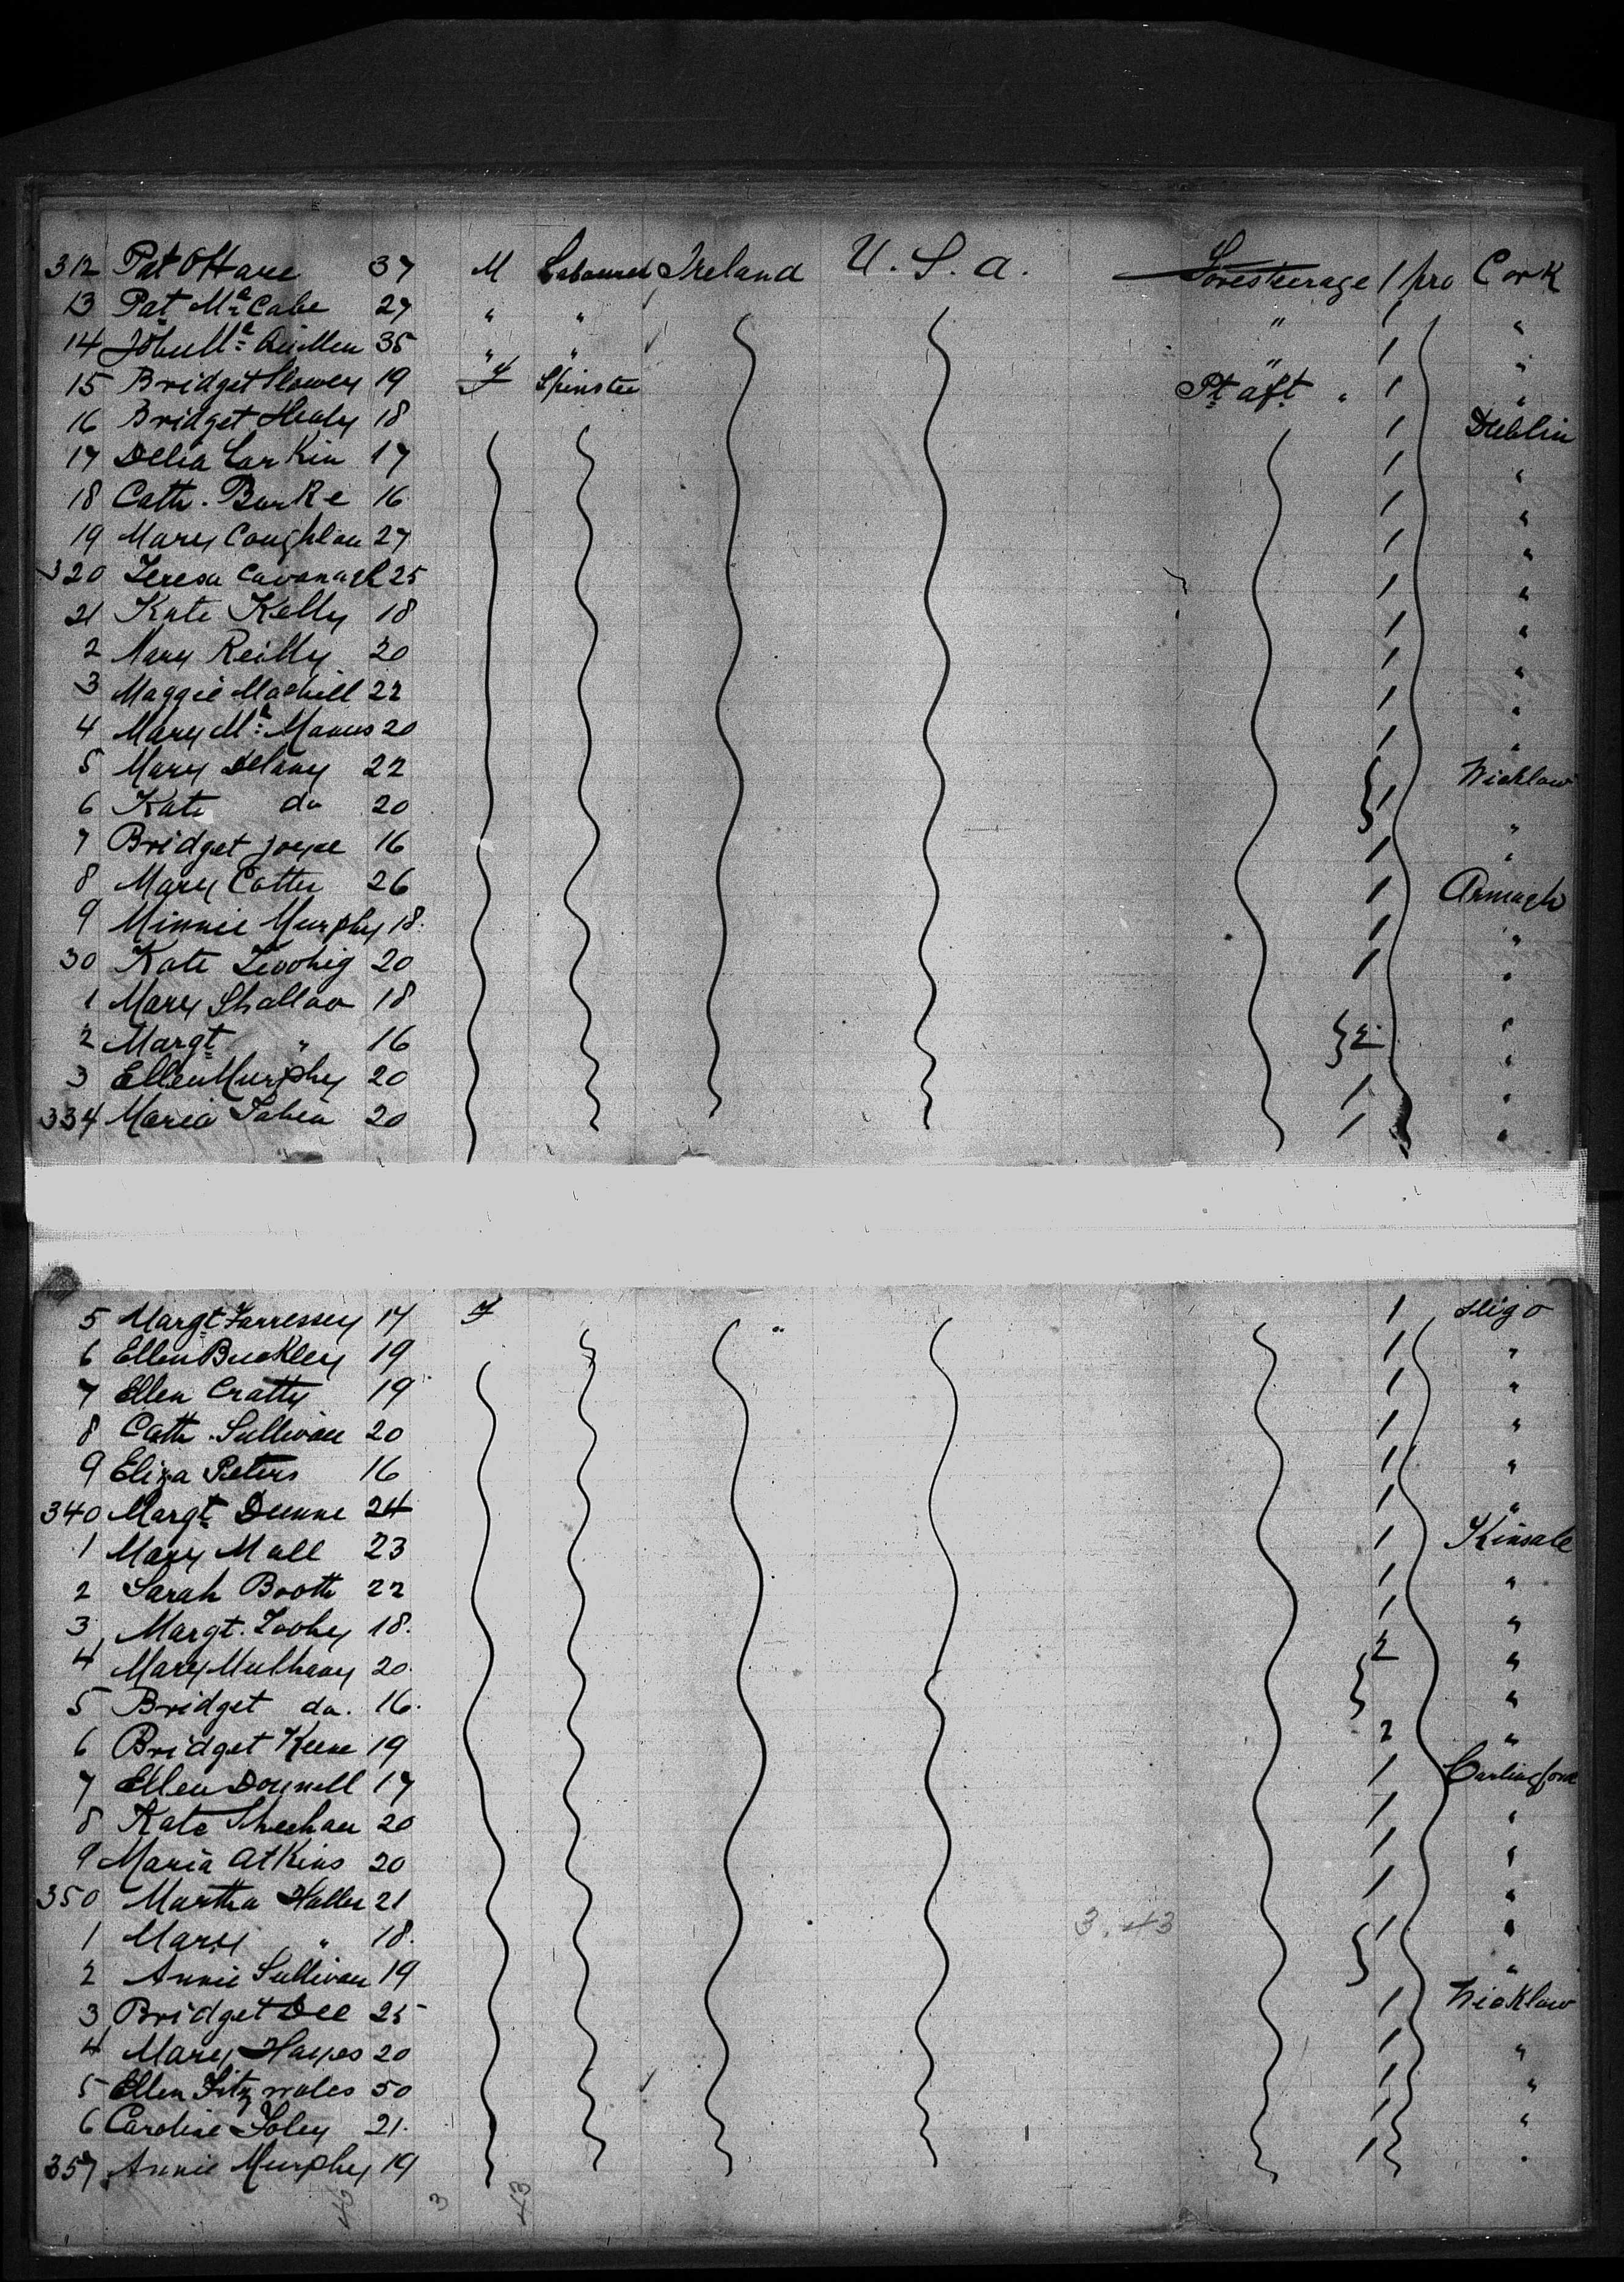 312 Pat O'Hare 37 M Labourer Ireland U.S.A. Foresteerage 1 pro Cork
13 Pat Mc Cabe 27 " " " 1 "
14 John Mc 35 " " " 1 "
15 Bridget Slowey 19 F Spinster Pt aft " 1 "
16 Bridget Healy 18 1 Dublin
17 Delia Larkin 17 1 "
18 Cath. Burke 16 1 "
19 Mary Coughlan 27 1 "
320 Teresa Cavanagh 25 1 "
21 Kate Kelly 18 1 "
2 Mary Reilly 20 1 "
3 Maggie Machill 22 1 "
4 Mary Mc Manus 20 1 "
5 Mary Delany 22 Wicklow
6 Kate do 20 1 "
7 Bridget Joyce 16 1 "
8 Mary Cotter 26 1 Armagh
9 Minnie Murphy 18. 1 "
30 Kate Twohig 20 1 "
1 Mary Shalloo 18 "
2 Margt " 16 2 "
3 Ellen Murphy 20 1 "
334 Maria Fahea 20 1 "
5 Margt Farressey 17 F " 1 Sligo
6 Ellen Buckley 19 1 "
7 Ellen Cratty 19 1 "
8 Cath. Sullivan 20 1 "
9 Eliza Peters 16 1 "
340 Margt Dunne 24 1 "
1 Mary Mall 23 1 Kinsale
2 Sarah Booth 22 1 "
3 Margt. Toohey 18. 1 "
4 Mary Mulhany 20. 2 "
5 Bridget do. 16. "
6 Bridget Keene 19 2 "
7 Ellen Donnell 17 1 Carlingford
8 Kate Sheehan 20 1 "
9 Maria Atkins 20 1 "
350 Martha Haller 21 1 "
1 Mary " 18. 3.43 1 "
2 Annie Sullivan 19 "
3 Bridget Dee 25 1 Wicklow
4 Mary Hayes 20 1 "
5 Ellen Fitz 50 1 "
6 Caroline Foley 21. 1 "
357 Annie Murphy 19 1 "
3 43